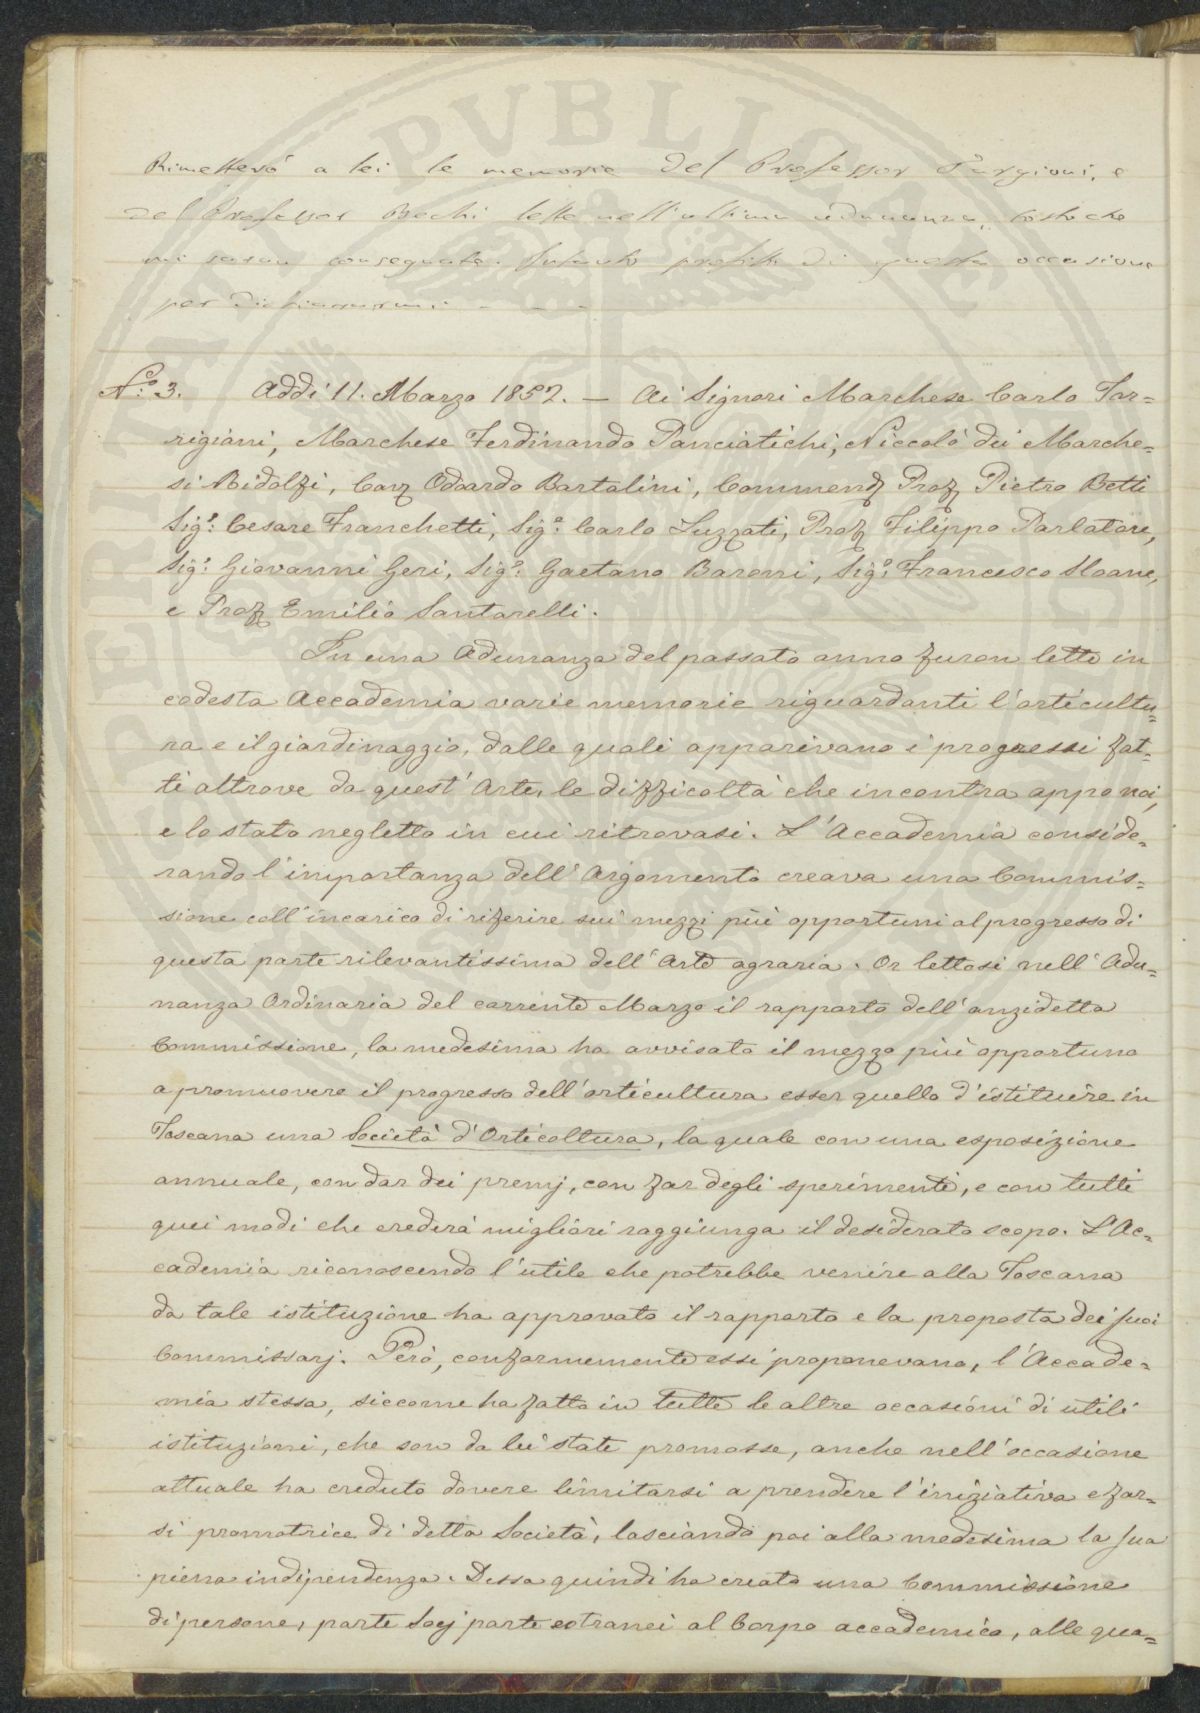 Rimetterò a lei le memorie del Professor Targioni, e
del Professor Bechi lette nell'ultima adunanza, tosto che
mi saran consegnate. Intanto profitto di questa occasione
per dichiararmi - - - -
N.º 3. Addi 11. Marzo 1852. — Ai Signori Marchese Carlo Tor=
rigiani, Marchese Ferdinando Panciatichi, Niccolò dei Marche=
si Ridolfi, Cav Odoardo Bartalini, Commend Prof Pietro Betti
Sig.: Cesare Franchetti, Sig.: Carlo Luzzati, Prof Filippo Parlatore,
Sig.: Giovanni Geri, Sig.: Gaetano Baroni, Sig.: Francesco Sloane,
e Prof Emilio Santarelli.
In una Adunanza del passato anno furon lette in
codesta Accademia varie memorie riguardanti l'orticultu=
ra e il giardinaggio, dalle quali apparivano i progressi fat=
ti altrove da quest'Arte, le difficoltà che incontra appo noi,
e lo stato negletto in cui ritrovasi. L'Accademia conside=
rando l'importanza dell'Argomento creava una Commis=
sione coll'incarico di riferire sui mezzi più opportuni al progresso di
questa parte rilevantissima dell'Arte agraria. Or lettosi nell'Adu=
nanza Ordinaria del corrente Marzo il rapporto dell'anzidetta
Commissione, la medesima ha avvisato il mezzo più opportuno
a promuovere il progresso dell'orticultura esser quello d'istituire in
Toscana una Società d'Orticoltura, la quale con una esposizione
annuale, con dar dei premj, con far degli sperimenti, e con tutti
quei modi che crederà migliori raggiunga il desiderato scopo. L'Ac=
cademia riconoscendo l'utile che potrebbe venire alla Toscana
da tale istituzione ha approvato il rapporto e la proposta dei suoi
Commissarj. Però, conformemente essi proponevano, l'Accade=
mia stessa, siccome ha fatto in tutte le altre occasioni di utili
istituzioni, che son da lei state promosse, anche nell'occasione
attuale ha creduto dovere limitarsi a prendere l'iniziativa e far=
si promotrice di detta Società, lasciando poi alla medesima la sua
piena indipendenza. Dessa quindi ha creato una Commissione
di persone, parte Socj parte estranei al Corpo accademico, alle qua=